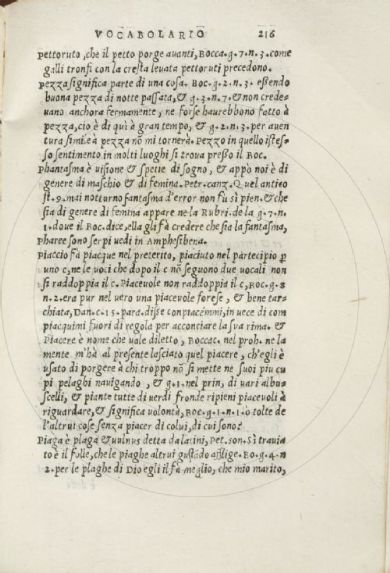 VOCABOLARIO 216
Pettoruto, che il petto porge auanti, Bocca.g.7.n.3.come
galli tronfi con la cresta leuata pettoruti precedono.
Pezza significa parte di una cosa. Boc.g.2.n.3. essendo
buona pezza di notte passata, & g.3.n.7. & non crede-
uano anchora fermamente, ne forse haurebbono fatto à
pezza, cio è di quà à gran tempo, & g.2.n.3. per auen
tura simile à pezza nō mi tornerà. Pezzo in quello istes-
so sentimento in molti luoghi si troua presso il Boc.
Phantasma è uisione & spetie di sogno, & appò noi è di
genere di maschio & di femina. Petr. canz. Quel antico
st.9. mai notturno fantasma d'error non fu sì pien. & che
sia di genere di femina appare ne la Rubri. de la g.7.n.
1. doue il Boc. dice, ella gli fà credere che sia la fantasma,
Pharee sono serpi uedi in Amphesibena.
Piaccio fà piacque nel preterito, piaciuto nel participio p
uno c, ne le uoci che dopo il c nō seguono due uocali non
si raddoppia il c. Piaceuole non raddoppia il c, Boc.g.8
n.2. era pur nel uero una piaceuole forese, & bene tar-
chiata, Dan.c.15. para. disse compiacemmi, in uece di com
piacquimi fuori di regola per acconciare la sua rima. &
Piacere è nome che uale diletto, Boccac. nel proh. ne la
mente m'hà al presente lasciato quel piacere, ch'egli è
usato di porgere à chi troppo nō si mette ne suoi piu cu
pi pelaghi nauigando, & g.1. nel prin. di uari albu-
scelli, & piante tutte di uerdi fronde ripieni piaceuoli à
riguardare, & significa uolontà, Boc.g.1.n.1. ò tolte de
l'altrui cose senza piacer di colui, di cui sono?
Piaga è plaga & uulnus detta da latini, Pet. son. Sì trauia
to è il folle, che le piaghe altrui gustādo afflige. Bo.g.4.n
2. per le plaghe di Dio egli il fà meglio, che mio marito,